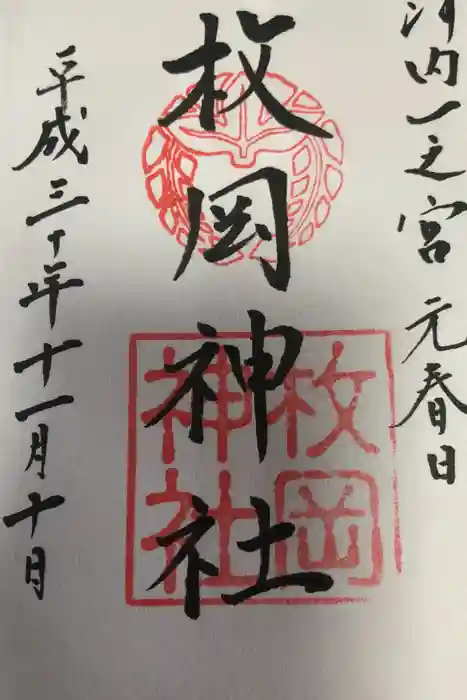 河内一之宮 元春日
枚岡神社
平成三十年十一月十日
枚岡
神社